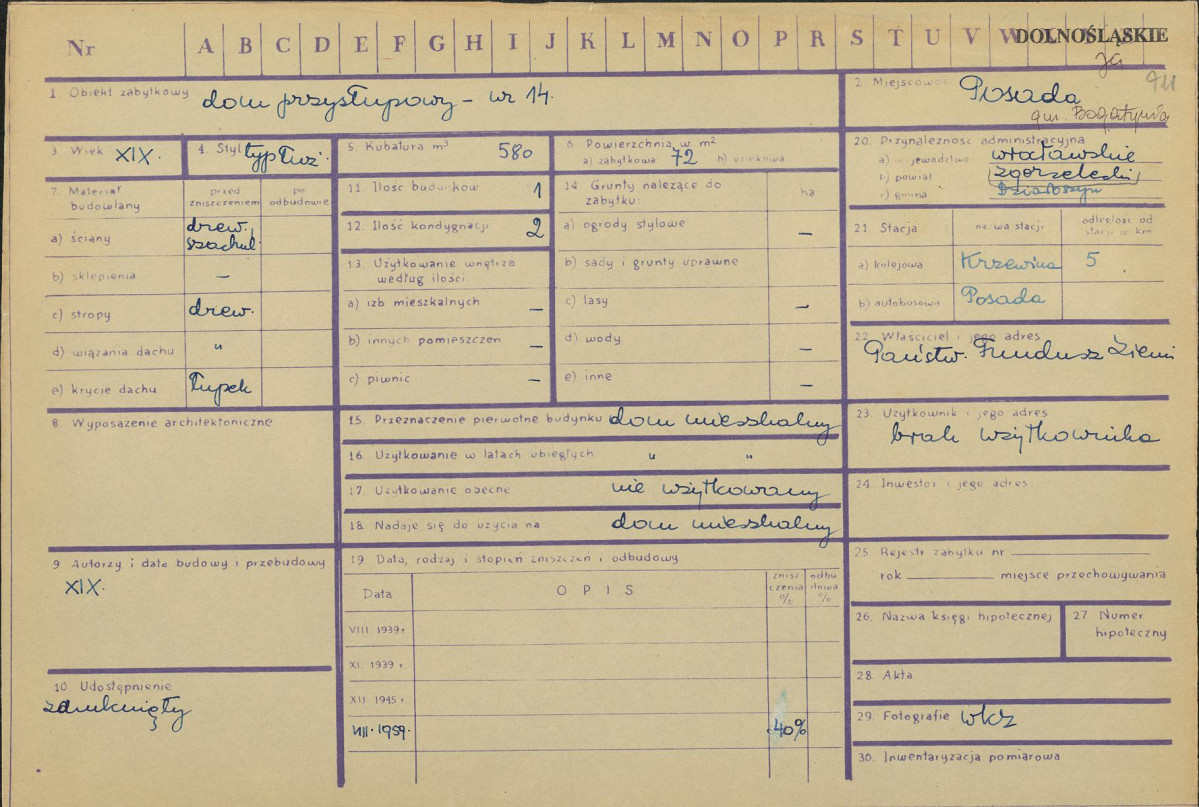 Nr A B C D E F G H I J K L M N O P R S T U V W DOLNOŚLĄSKIE
1. Obiekt zabytkowy dom przysłupowy - nr 14.
2. Miejscowość Posada
gm. Bogatynia
3. Wiek XIX.
4. Styl typ łuż.
5. Kubatura m³ 580
6. Powierzchnia w m²
a) zabytkowa 72 b) użytkowa
7. Materiał budowlany
przed zniszczeniem
po odbudowie
a) ściany drew. szachul.
b) sklepienia —
c) stropy drew.
d) wiązania dachu "
e) krycie dachu łupek
8. Wyposażenie architektoniczne
9. Autorzy i data budowy i przebudowy
XIX.
10. Udostępnienie
zamknięty
11. Ilość budynków 1
12. Ilość kondygnacji 2
13. Użytkowanie wnętrza
według ilości:
a) izb mieszkalnych —
b) innych pomieszczeń —
c) piwnic —
14. Grunty należące do
zabytku:
ha
a) ogrody stylowe —
b) sady i grunty uprawne
c) lasy —
d) wody —
e) inne —
15. Przeznaczenie pierwotne budynku dom mieszkalny
16. Użytkowanie w latach ubiegłych " "
17. Użytkowanie obecne nie użytkowany
18. Nadaje się do użycia na dom mieszkalny
19. Data, rodzaj i stopień zniszczeń i odbudowy
Data OPIS zniszczenia % odbudowa %
VIII. 1939 r
XI. 1939 r
XII 1945 r
VIII. 1959. 40%
20. Przynależność administracyjna
a) województwo wrocławskie
b) powiat zgorzelecki
c) gmina Działoszyn
21. Stacja nazwa stacji odległość od stacji w km
a) kolejowa Krzewina 5
b) autobusowa Posada
22. Właściciel i jego adres
Państw. Fundusz Ziemi
23. Użytkownik i jego adres
brak użytkownika
24. Inwestor i jego adres:
25. Rejestr zabytku nr
rok miejsce przechowywania
26. Nazwa księgi hipotecznej
27 Numer
hipoteczny
28. Akta
29. Fotografie wkz
30. Inwentaryzacja pomiarowa